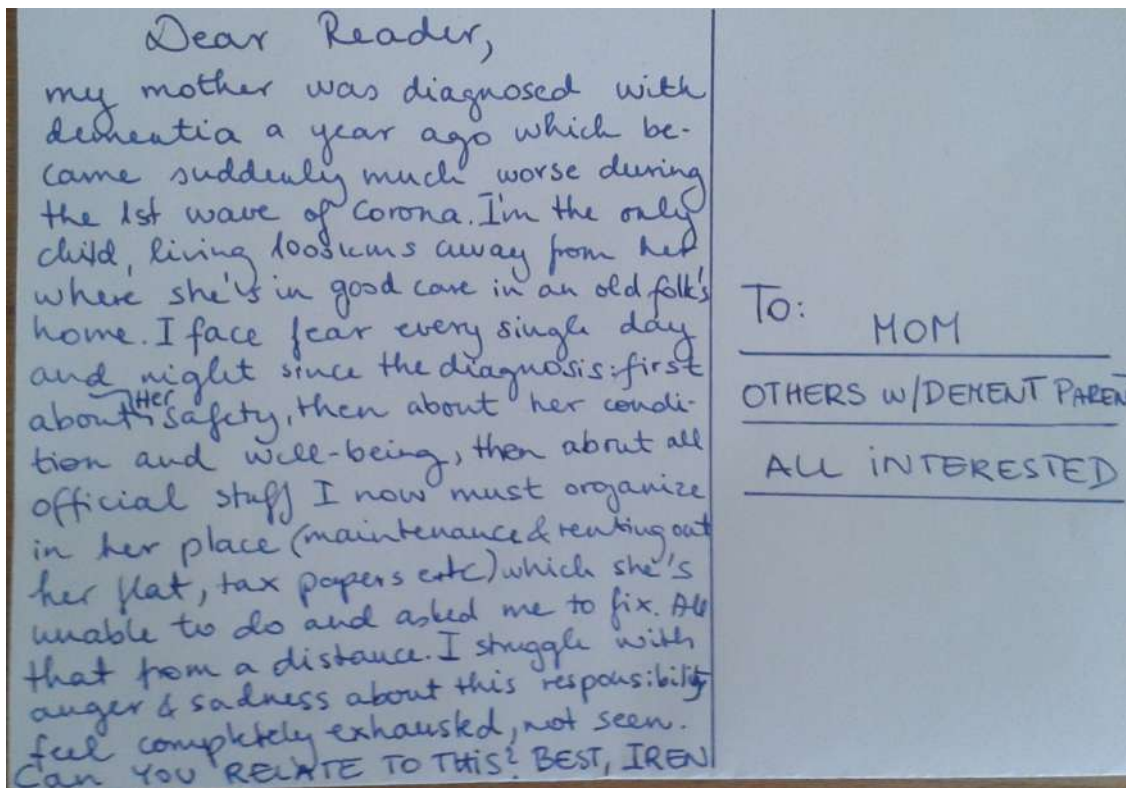 Dear Reader,
my mother was diagnosed with
dementia a year ago which be-
came suddenly much worse during
the 1st wave of Corona. I'm the only
child, living 100s kms away from her
where she's in good care in an old folk's
home. I face fear every single day
and night since the diagnosis: first
about Her safety, then about her condi-
tion and well-being, then about all
official stuff I now must organize
in her place (maintenance & renting out
her flat, tax papers etc) which she's
unable to do and asked me to fix. All
that from a distance. I struggle with
anger & sadness about this responsibility
feel completely exhausted, not seen.
CAN YOU RELATE TO THIS? BEST, IREN
To: MOM
OTHERS W/DEMENT PAREN
ALL INTERESTED